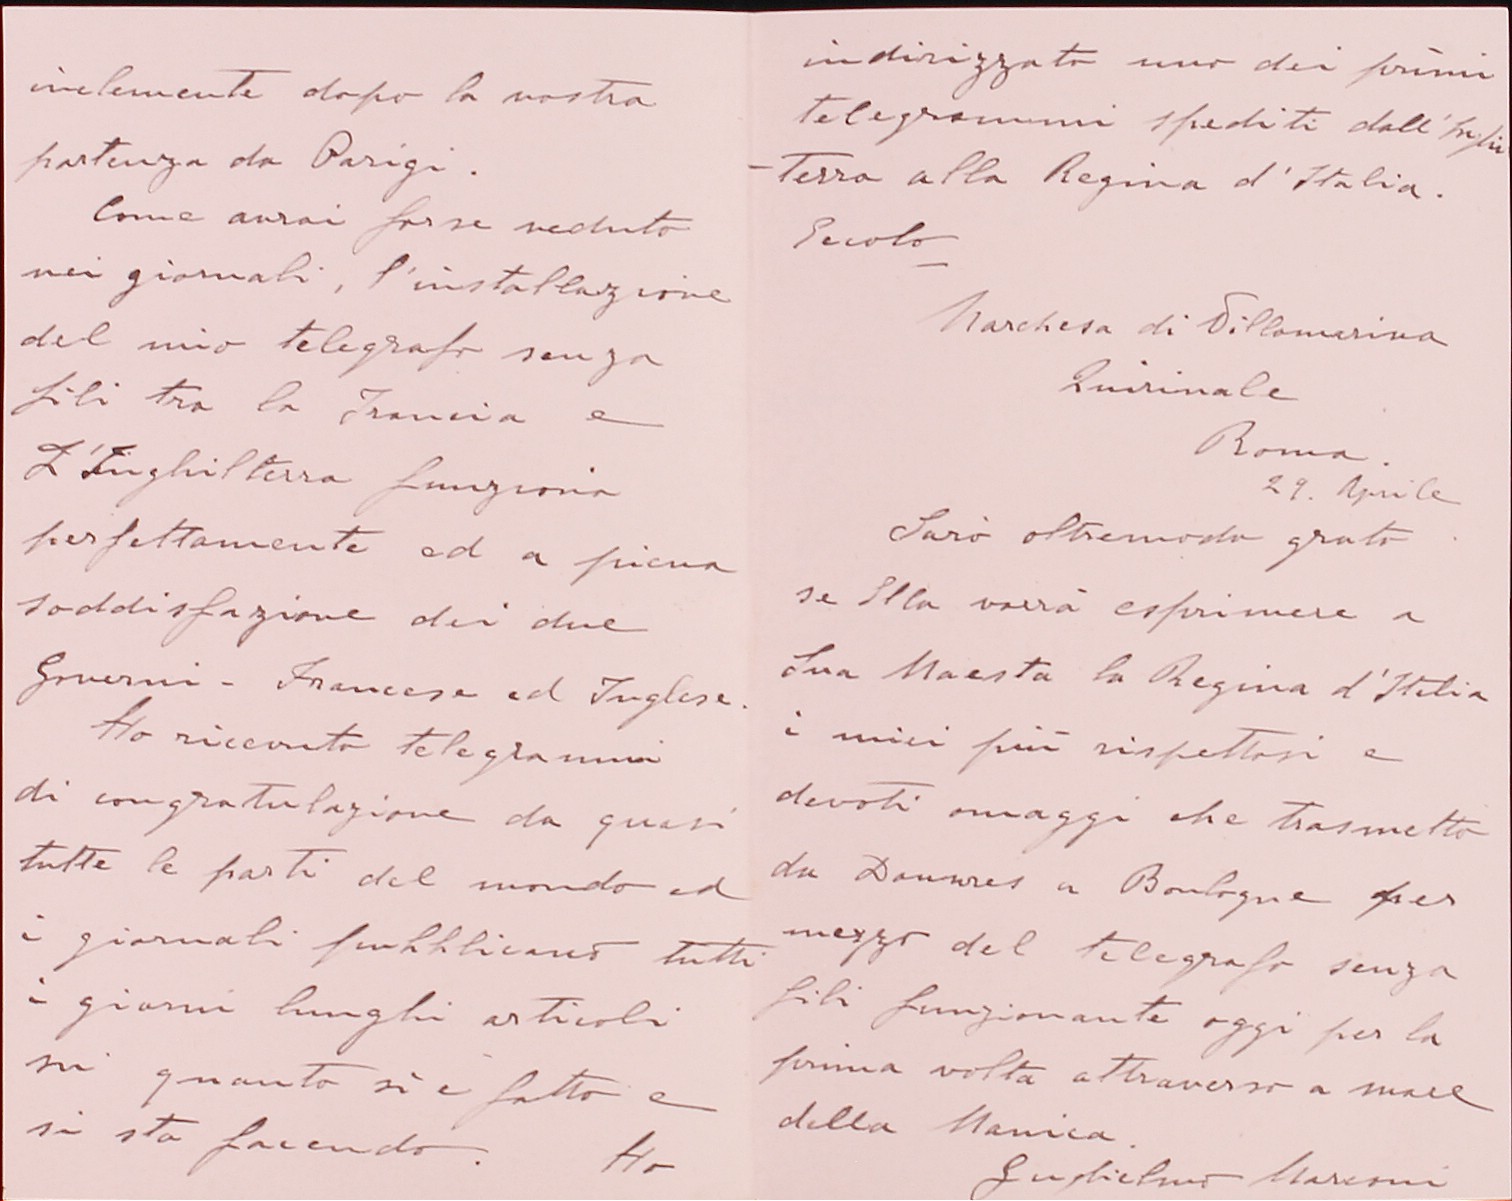 inclemente dopo la vostra
partenza da Parigi.
Come avrai forse veduto
nei giornali, l'installazione
del mio telegrafo senza
fili tra la Francia e
L'Inghilterra funziona
perfettamente ed a piena
soddisfazione dei due
Governi - Francese ed Inglese.
Ho ricevuto telegrammi
di congratulazione da quasi
tutte le parti del mondo ed
i giornali pubblicano tutti
i giorni lunghi articoli
su quanto si è fatto e
si sta facendo. Ho
indirizzato uno dei primi
telegrammi spediti dall'Inghil
-terra alla Regina d'Italia.
Eccolo
Marchesa di Villamarina
Quirinale
Roma.
29. Aprile
Sarò oltremodo grato
se Ella vorrà esprimere a
Sua Maesta la Regina d'Italia
i miei più rispettosi e
devoti omaggi che trasmetto
da Douvres a Boulogne per
mezzo del telegrafo senza
fili funzionante oggi per la
prima volta attraverso a mare
della Manica.
Guglielmo Marconi